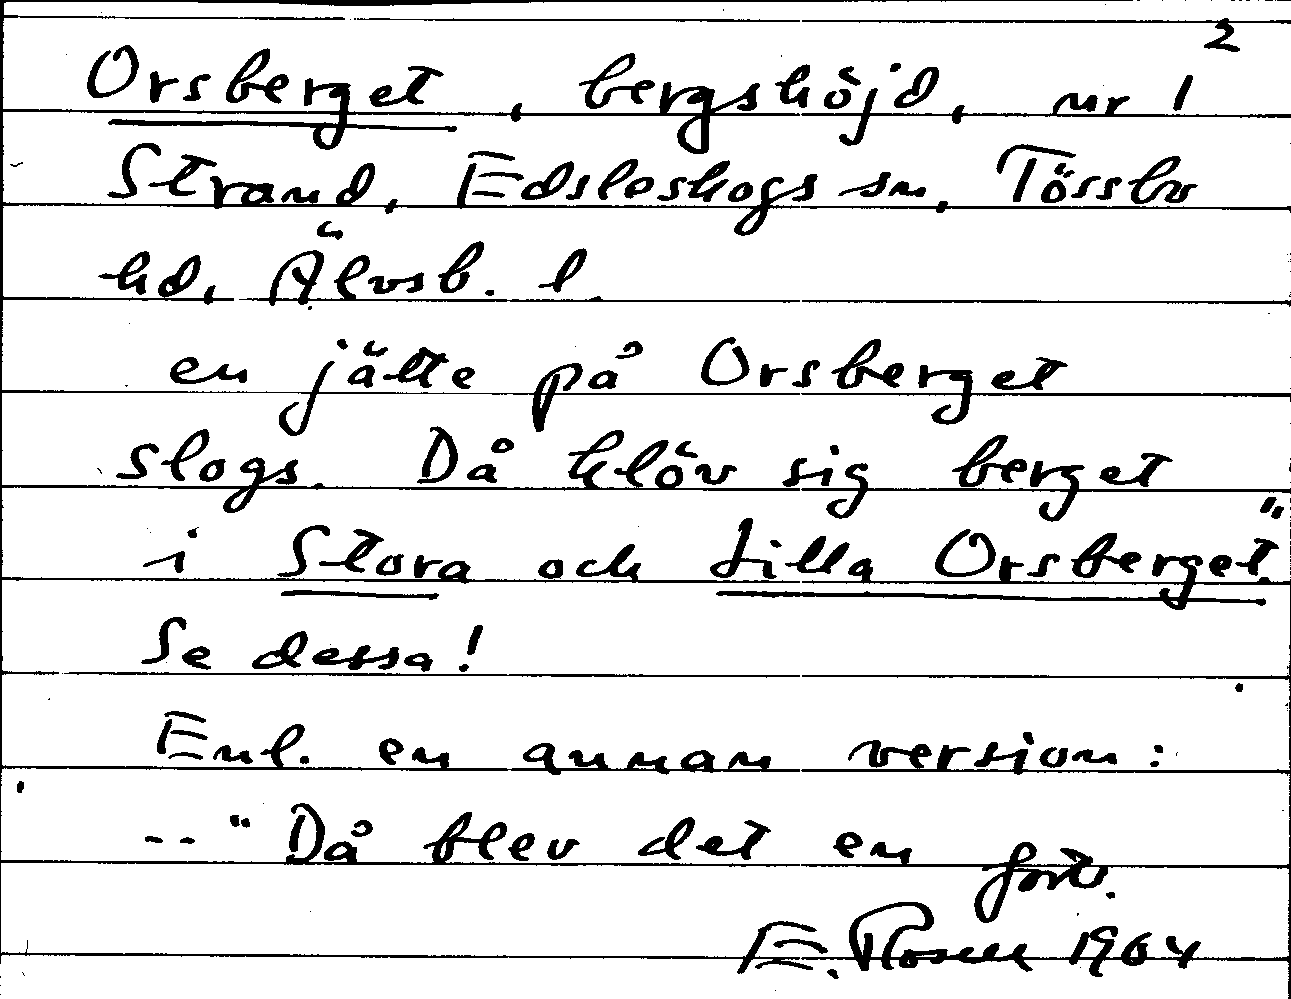 2
Orsberget, bergshöjd, nr 1
Strand, Edsleskogs sn, Tössbo
hd, Älvsb. l.
en jätte på Orsberget
slogs. Då klöv sig berget
i Stora och Lilla Orsberget."
Se dessa!
Enl. en annan version:
-- "Då blev det en fort.
E. Rosell 1964